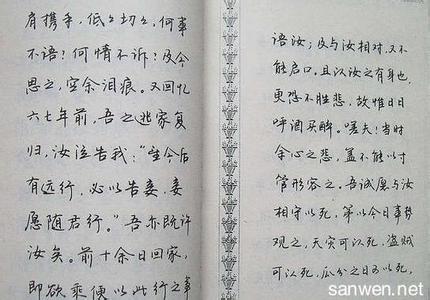 肩携手，低低切切，何事
不语？何情不诉？及今
思之，空余泪痕。又回忆
六七年前，吾之逃家复
归，汝泣告我："望今后
有远行，必以告妾，妾
愿随君行。"吾亦既许
汝矣。前十余日回家，
即欲乘便以此行之事
语汝；及与汝相对，又不
能启口。且以汝之有身也，
更恐不胜悲，故惟日日
呼酒买醉。嗟夫！当时
余心之悲，盖不能以寸
管形容之。吾诚愿与汝
相守以死，第以今日事势
观之，天灾可以死，盗贼
可以死，瓜分之日可以死，
sanwen.net